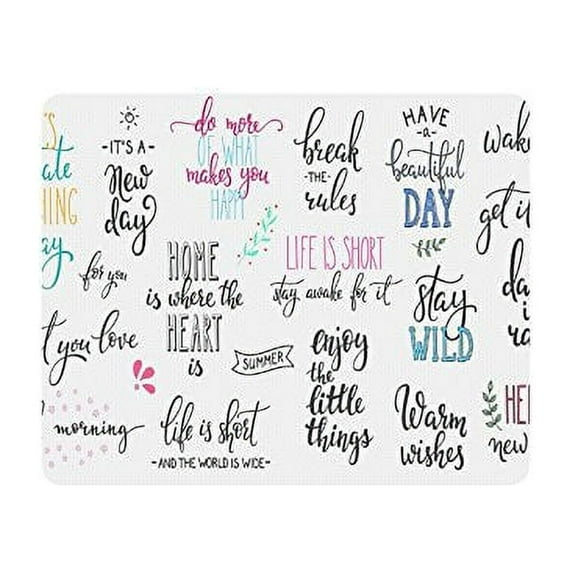 -IT'S A-
New
day
do more
OF WHAT
makes you
HAPPY
break
-THE-
rules
HAVE
-a-
beautiful
DAY
for you
HOME
is where the
HEART
is
LIFE IS SHORT
stay awake for it
stay
WILD
you love
SUMMER
enjoy
the
little
things
morning
life is short
-AND THE WORLD IS WIDE-
Warm
wishes
get
new